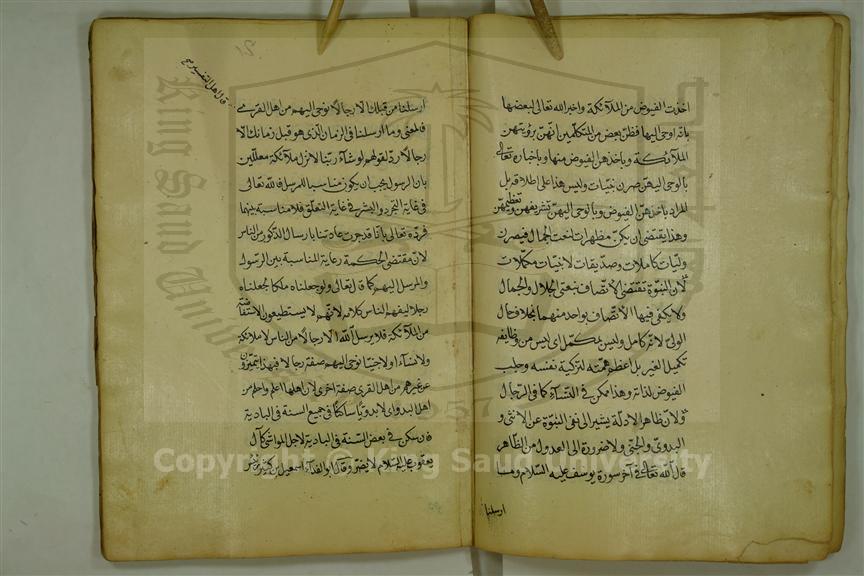 اخذت الفيوض من الملآئكة واخبر الله تعالى لبعضها
بانه اوحى اليها فظن بعض من المتكلمين انهن برؤيتهن
الملآئكة وباخذهن الفيوض منها وباخباره تعالى
بالوحى اليهن صرن نبيّات وليس هذا على اطلاقه بل
المراد باخذهن الفيوض وبالوحى اليهن تشريفهن وتعظيمهن
وهذا يقتضى ان يكن مظهرات تحت الجمال فيصرن
وليّات كاملات وصديقات لا نبيّات مكملات
لان النبوّة تقتضى الاتصاف بنعتى الجلال والجمال
ولا يكفى فيها الاتصاف بواحد منهما بخلاف حال
الولىّ لانه كامل وليس بمكمّل اى ليس من وظايفه
تكميل الغير بل اعظم همّته لتزكية نفسه وجلب
الفيوض لذاته وهذا ممكن فى النسآء كما فى الرجال
ولان ظاهر الادلة يشير الى نفى النبوّة عن الانثى و
البدوىّ والجنّى ولا ضرورة الى العدول من الظاهر
قال الله تعالى فى آخر سورة يوسف عليه السّلام وما
ارسلنا
ارسلنا من قبلك الا رجالا نوحى اليهم من اهل القرى
فالمعنى وما ارسلنا فى الزمان الذى هو قبل زمانك الا
رجالا ردّ لقولهم لو شآء ربنا لانزل ملآئكة معللين
بان الرسول يجب ان يكون مناسبا للمرسل فالله تعالى
فى غاية التجرد والبشر فى غاية التعلق فلا مناسبة بينهما
فردّه تعالى بانا قد جرت عادتنا بارسال الذكور من الناس
لان مقتضى الحكمة رعاية المناسبة بين الرسول
والمرسل اليهم كما قال تعالى ولو جعلناه ملكا لجعلناه
رجلا ليفهم الناس كلامه لانهم لا يستطيعون الاستفاضة
من الملآئكة فلا يرسل الله الا رجالا من الناس لا ملائكة
ولا نسآء ولا جنيّا نوحى اليهم صفة رجالا فبهذا يتميزون
عن غيرهم من اهل القرى صفة اخرى لان اهلها اعلم واحلم من
اهل البدو اى لا بدويّا ساكنا فى جميع السنة فى البادية
فان سكن فى بعض السّنة فى البادية لاجل المواشى كآل
يعقوب عليه السّلام لا يضر وقال ابو الفدآء اسمعيل بن كثير
قال اهل التفسير صح
King Saud University
1957
Copyright © King Saud University